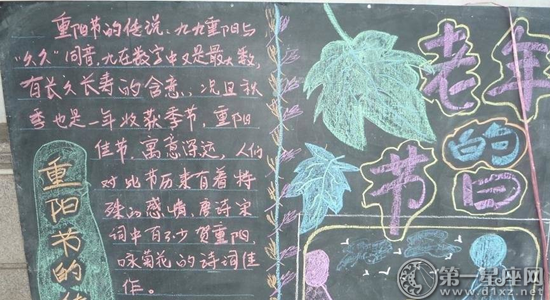 重阳节的传说、九九重阳与
“久久”同音,九在数字中又是最大数,
有长久长寿的含意、况且秋
季也是一年收获季节,重阳
佳节,寓意深远,人们
对此节历来有着特
殊的感情,唐诗宋
词中有不少贺重阳,
咏菊花的诗词佳
作。
重阳节的
老年
的
节日
第一星座网
www.d1xz.net